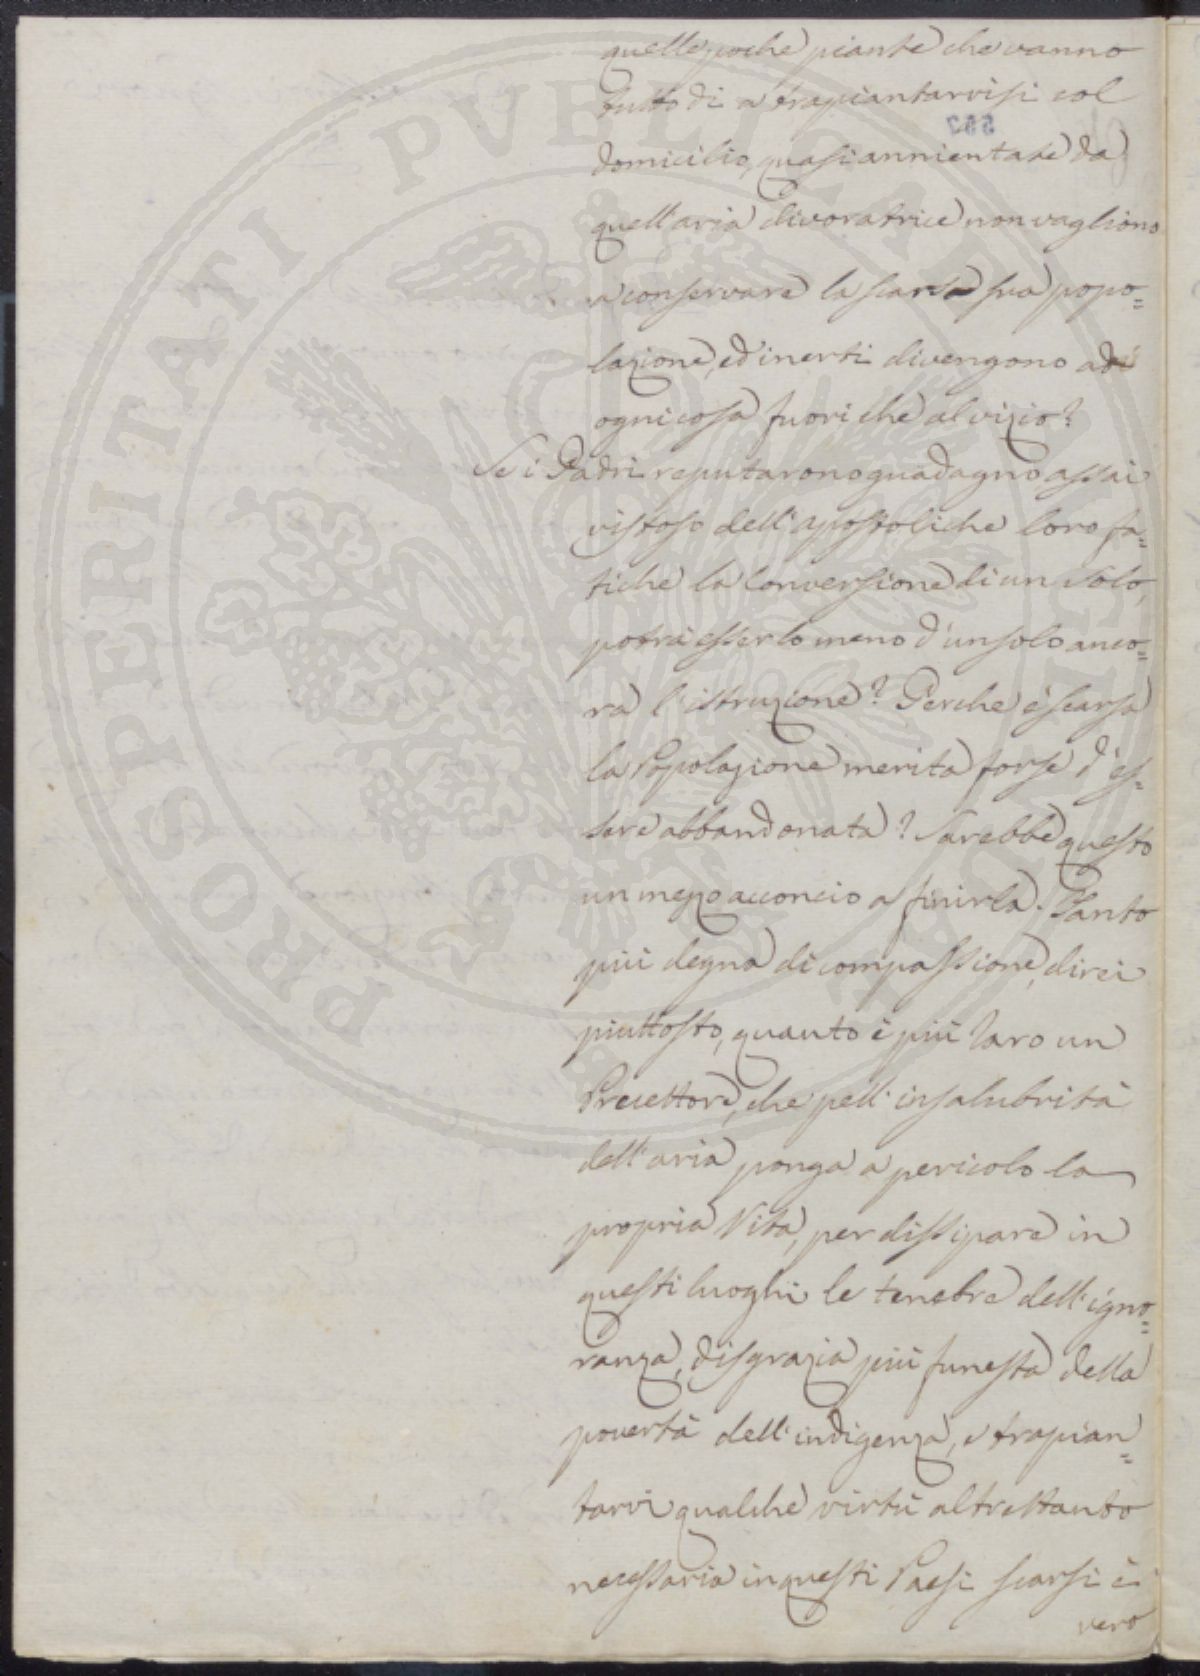 quelle poche piante che vanno
tutto di a trapiantarvisi col
domicilio, quasi annientate da
quell'aria divoratrice non vagliono
a conservare la scarsa sua popo=
lazione, ed inerti divengono ad
ogni cosa fuori che al vizio?
Se i Padri reputarono guadagno assai
vistoso dell'apostoliche loro fa=
tiche la Conversione di un Solo,
potrà esserlo meno d'un solo anco=
ra l'istruzione? Perche è scarsa
la Popolazione merita forse d'es=
sere abbandonata? Sarebbe questo
un mezzo acconcio a finirla. Tanto
più degna di compassione, direi
piuttosto, quanto è più raro un
Precettore, che pell'insalubrità
dell'aria ponga a pericolo la
propria Vita, per dissipare in
questi luoghi le tenebre dell'igno=
ranza, disgrazia più funesta della
povertà dell'indigenza, e trapian=
tarvi qualche virtù altrettanto
necessaria in questi Paesi scarsi è
vero
PROSPERITATI PUBLICAE